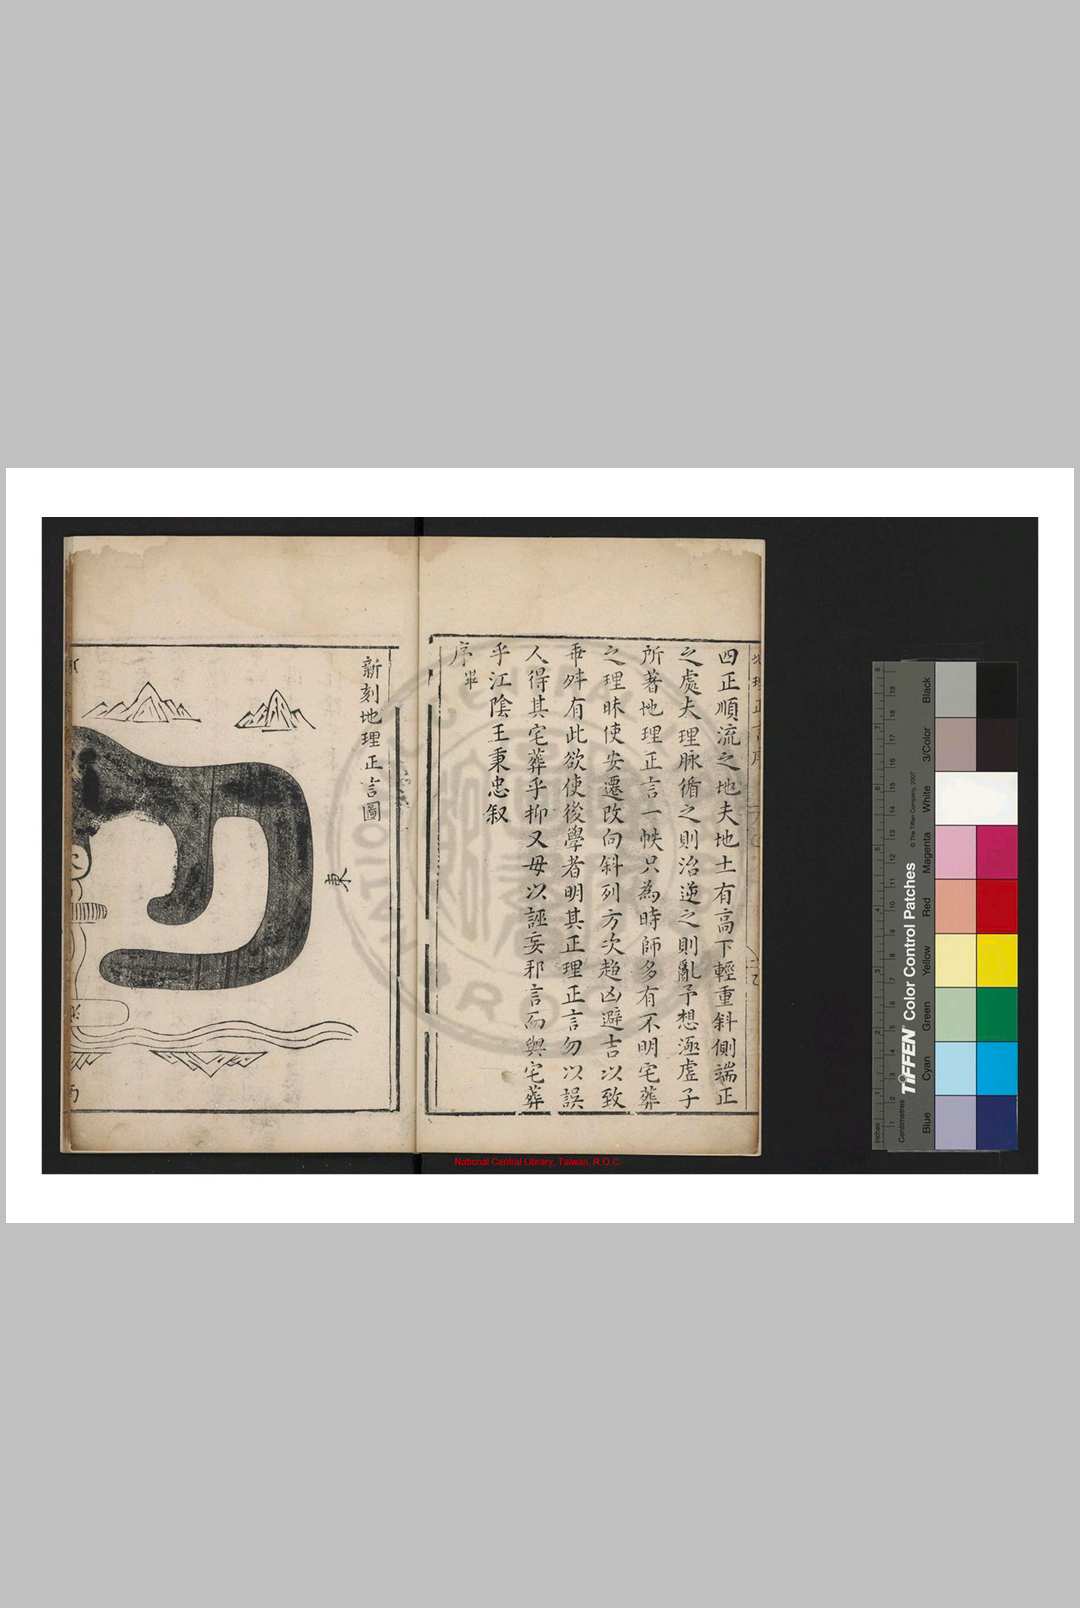 四正順流之地夫地土有高下輕重斜側端正
之處夫理脉循之則治逆之則亂予想逐虛子
所著地理正言一帙只為時師多有不明宅葬
之理昧使安遷改向斜列方次趨凶避吉以致
乖舛有此欲使後學者明其正理正言勿以誤
人得其宅葬乎抑又毋以誣妄邪言而與宅葬
乎江陰王秉忠叙
序畢
新刻地理正言圖
東
National Central Library, Taiwan, R.O.C.
TIFFEN Color Control Patches
© The Tiffen Company, 2007
Blue Cyan Green Yellow Red Magenta White 3/Color Black
Inches
Centimetres